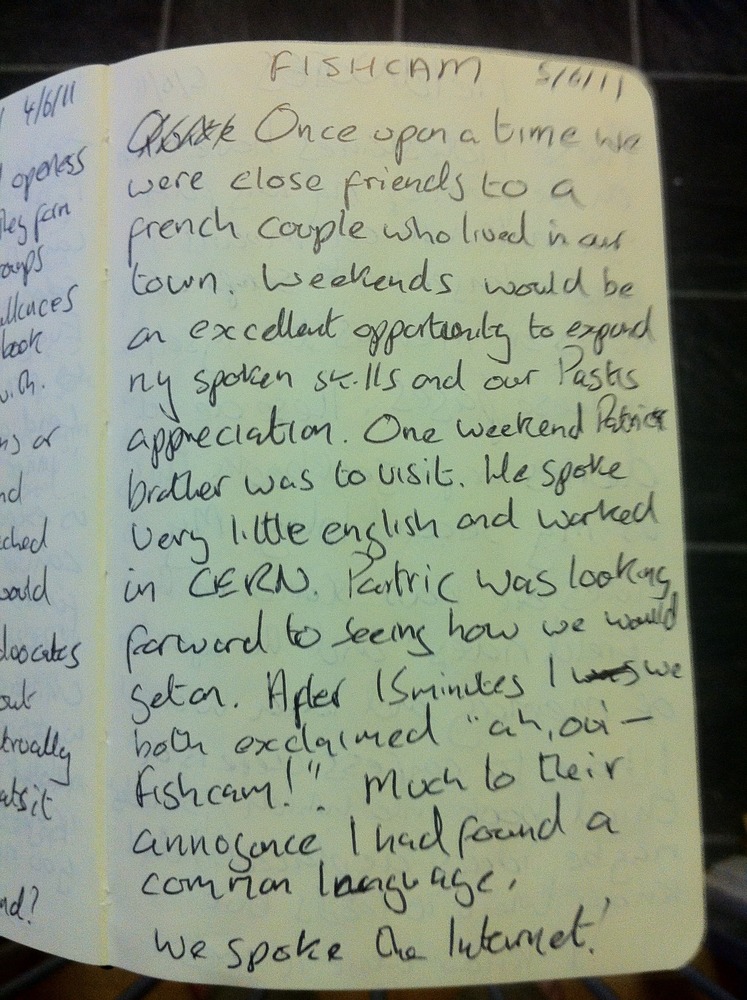 4/6/11
openess
they form
oups
book
with.
ns or
nd
ched
would
advocates
out
nd?
FISHCAM 5/6/11
Once upon a time we
were close friends to a
french couple who lived in our
town. Weekends would be
an excellent opportunity to expand
my spoken skills and our Pastis
appreciation. One weekend Patrics
brother was to visit. He spoke
very little english and worked
in CERN. Partric was looking
forward to seeing how we would
get on. After 15 minutes I was we
both exclaimed "ah, oui -
fishcam!". Much to their
annoyance I had found a
common language,
We spoke the Internet!